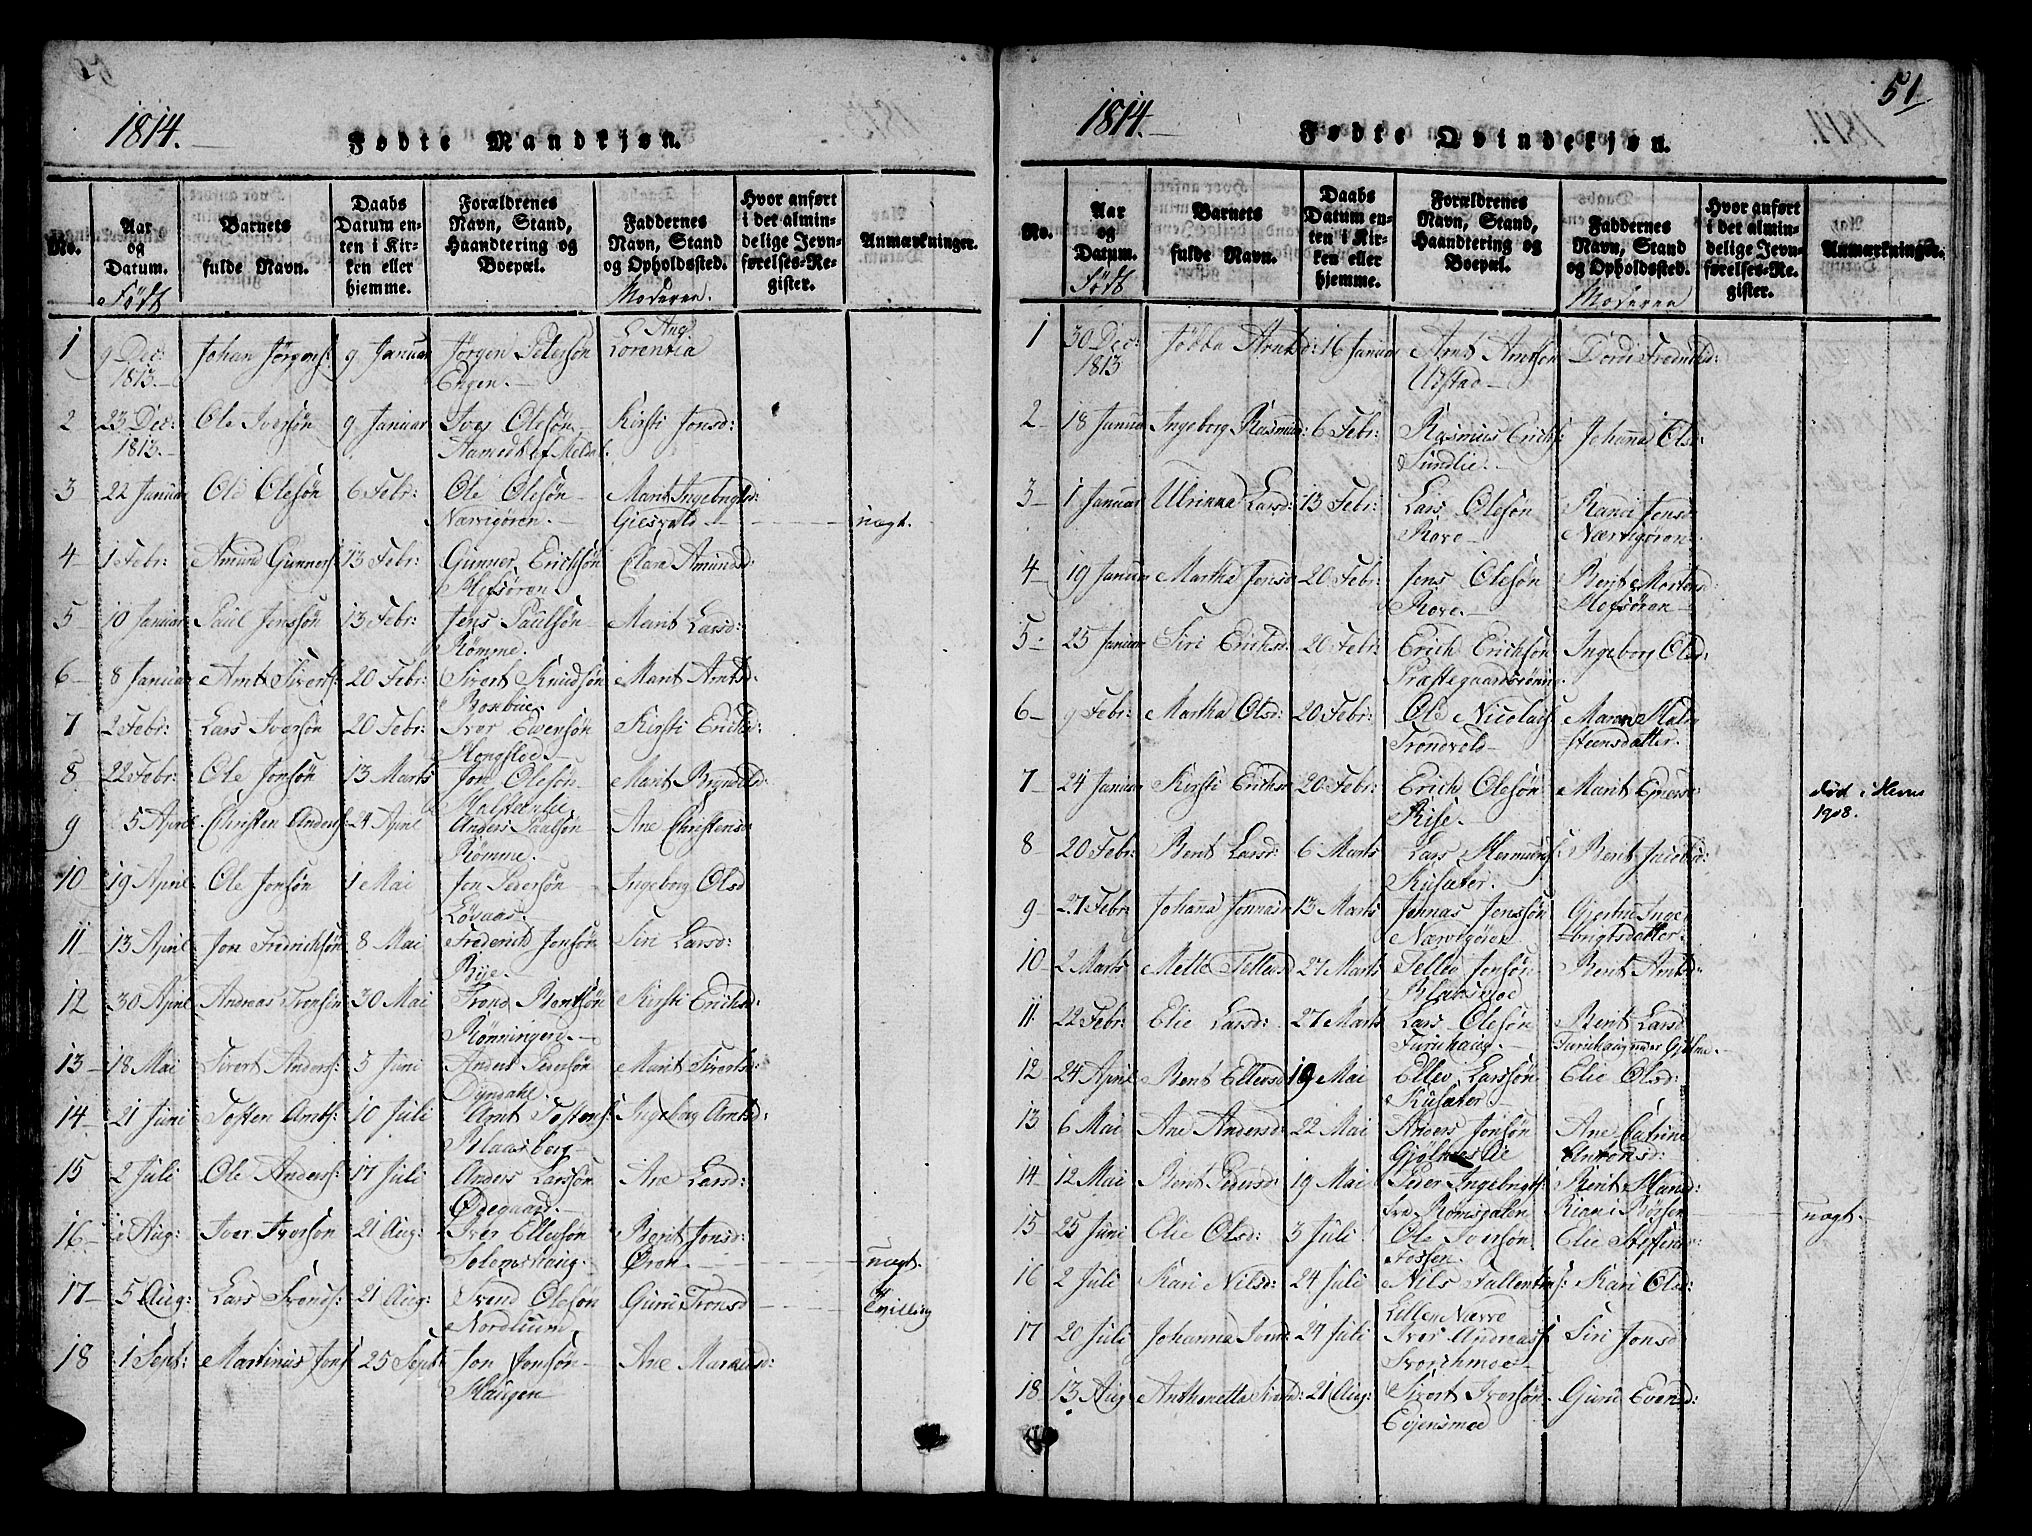 1814.
Fødte Mandkjøn.
No.
Aar og Datum.
Født
Barnets fulde Navn.
Daabs Datum enten i Kirken eller hjemme.
Forældrenes Navn, Stand, Haandtering og Boepæl.
Faddernes Navn, Stand og Opholdssted.
Moderen.
Hvor anført i det almindelige Jevnførelses-Register.
Anmærkninger.
1 9 Dec: Johan Jørgens: 9 Januar Jørgen Petersøn Ane Lorentia
1813.— Engen.—
2 23 Dec: Ole Iversøn 9 Januar Iver Olesøn Kirsti Jonsd:
1813.— Aamedt af Meldal.
3 22 Januar Ole Olesøn 6 Febr: Ole Olesøn Marit Ingebrigtsd:
Nærvigøren.— Giesvold nægt.
4 1 Febr: Amund Gunners: 13 Febr: Gunner Erichsøn Clara Amundsd:
Hofsøren.
5 10 Januar Paul Jenssøn 13 Febr: Jens Paulsøn Marit Larsd:
Rømme.
6 8 Januar Arnt Siverts: 20 Febr: Sivert Knudsøn Marit Arntsd:
Bosebue.
7 2 Febr: Lars Iversøn 20 Febr: Iver Evensøn Kirsti Erichsd:
Hongsloe.
8 22 Febr: Ole Jonsøn 13 Marts Jon Olesøn Marit Brynild:
9 5 April Christen Anders: 24 April Anders Paulsøn Ane Christensd
Rømme.
10 19 April Ole Jonsøn 1 Mai Jon Pedersøn Ingeborg Olsd
Løvaas.
11 13 April Jon Fredrichsøn 8 Mai Frederich Jonsøn Siri Larsd:
Rije.
12 30 April Andreas Tronsøn 30 Mai Trond Bentsøn Kirsti Erichsd:
Rønningen.
13 18 Mai Sivert Anders: 5 Juni Anders Pedersøn Marit Sivertsd:
Dyrdahl.
14 21 Juni Toften Arnts: 10 Juli Arnt Toftens: Ingebog Arntsd:
Blaasberg
15 2 Juli Ole Anders: 17 Juli Anders Larssøn Ane Larsd:
Ødegaard.
16 Aug: Iver Iversøn 21 Aug: Iver Ellevsøn Berit Jonsd:
Solemshaug. Øren. nægt.
17 5 Aug: Lars Tronds: 21 Aug: Trond Olesøn Guru Tronsd
Nordlium Tvilling
18 1 Sept: Martinus Jons: 25 Sept: Jon Jonsøn Ane Marcusd:
Haugen
51
1814.
Fødte Qvindekjøn.
No.
Aar og Datum.
Født
Barnets fulde Navn.
Daabs Datum enten i Kirken eller hjemme.
Forældrenes Navn, Stand, Haandtering og Boepæl.
Faddernes Navn, Stand og Opholdssted.
Moderen
Hvor anført i det almindelige Jevnførelses-Register.
Anmærkninger.
1 30 Dec: Arntsd: 16 Januar Arnt Arntsøn Dordi Fredrichsd:
1813 Udstad
2 18 Januar Ingeborg Rasmusd: 6 Febr: Rasmus Erichs: Johanna Olsd:
Sundlie.
3 1 Januar Ulrinna Larsd: 13 Febr: Lars Olesøn Ranei Jensd
Rove Nærvigøren
4 19 Januar Martha Jensd 20 Febr: Jens Olesøn Berit Mortens
Rove. Hofsøren
5 25 Januar Siri Erichsd 20 Febr: Erich Erichsøn Ingeborg Olsd:
Præstegaardsrønning
6 9 Febr: Martha Olsd: 20 Febr: Ole Nicolais: Maren Halsteensdatter.
Trondvold
7 24 Januar Kirsti Erichsd 20 Febr: Erich Olesøn Marit Ejnersd
Rise. død i
1908.
8 20 Febr: Berit Larsd: 6 Marts Lars Hermunds: Berit Jacobsd:
Kusæter.
9 27 Febr: Johana Jonnasd 13 Marts Johnas Jenssøn Gjertru Ingebrigtsdatter.
Nærvigøren
10 2 Marts Mette Tellevsd 27 Marts Tellev Jonsøn Berit Arntsd:
11 22 Febr: Elie Larsd: 27 Marts Lars Olesøn Berit Larsd
Furuhaug. Furuhaug under Gjølme.
12 24 April Berit Ellevsd 19 Mai Ellev Larssøn Elie Olsd:
Kusæter.
13 6 Mai Ane Andersd: 22 Mai Anders Jonsøn Ane Catrine
Gjølmeslie Antonsd:
14 12 Mai Berit Pedersd: 19 Mai Peder Ingebrigts: Berit Hansd:
fra Romsdalen Børsen nægt.
15 25 Juni Elie Olsd: 3 Juli Ole Iversøn Elie Steffensd
Fossen.
16 2 Juli Kari Nilsd: 24 Juli Nils Fallentins: Kari Olsd:
Lillen Nærve
17 20 Juli Johanna Iversd: 24 Juli Iver Andreas: Siri Jonsd
Svorchmoe
18 13 Aug Anthonetta Sivertsd: 21 Aug: Sivert Iversøn Guru Evensd:
Eijensmoe